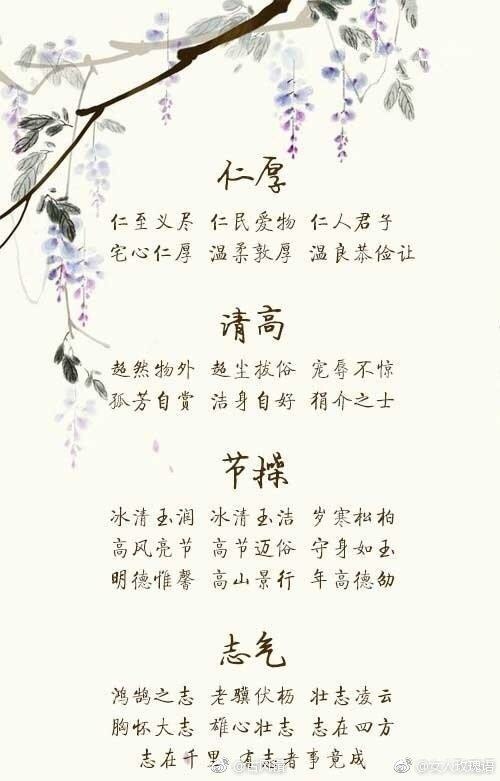 仁厚
仁至义尽 仁民爱物 仁人君子
宅心仁厚 温柔敦厚 温良恭俭让
请高
超然物外 超尘拔俗 宠辱不惊
孤芳自赏 洁身自好 狷介之士
节操
冰清玉润 冰清玉洁 岁寒松柏
高风亮节 高节迈俗 守身如玉
明德惟馨 高山景行 年高德劭
志气
鸿鹄之志 老骥伏枥 壮志凌云
胸怀大志 雄心壮志 志在四方
志在千里 有志者事竟成
@女人玫瑰语